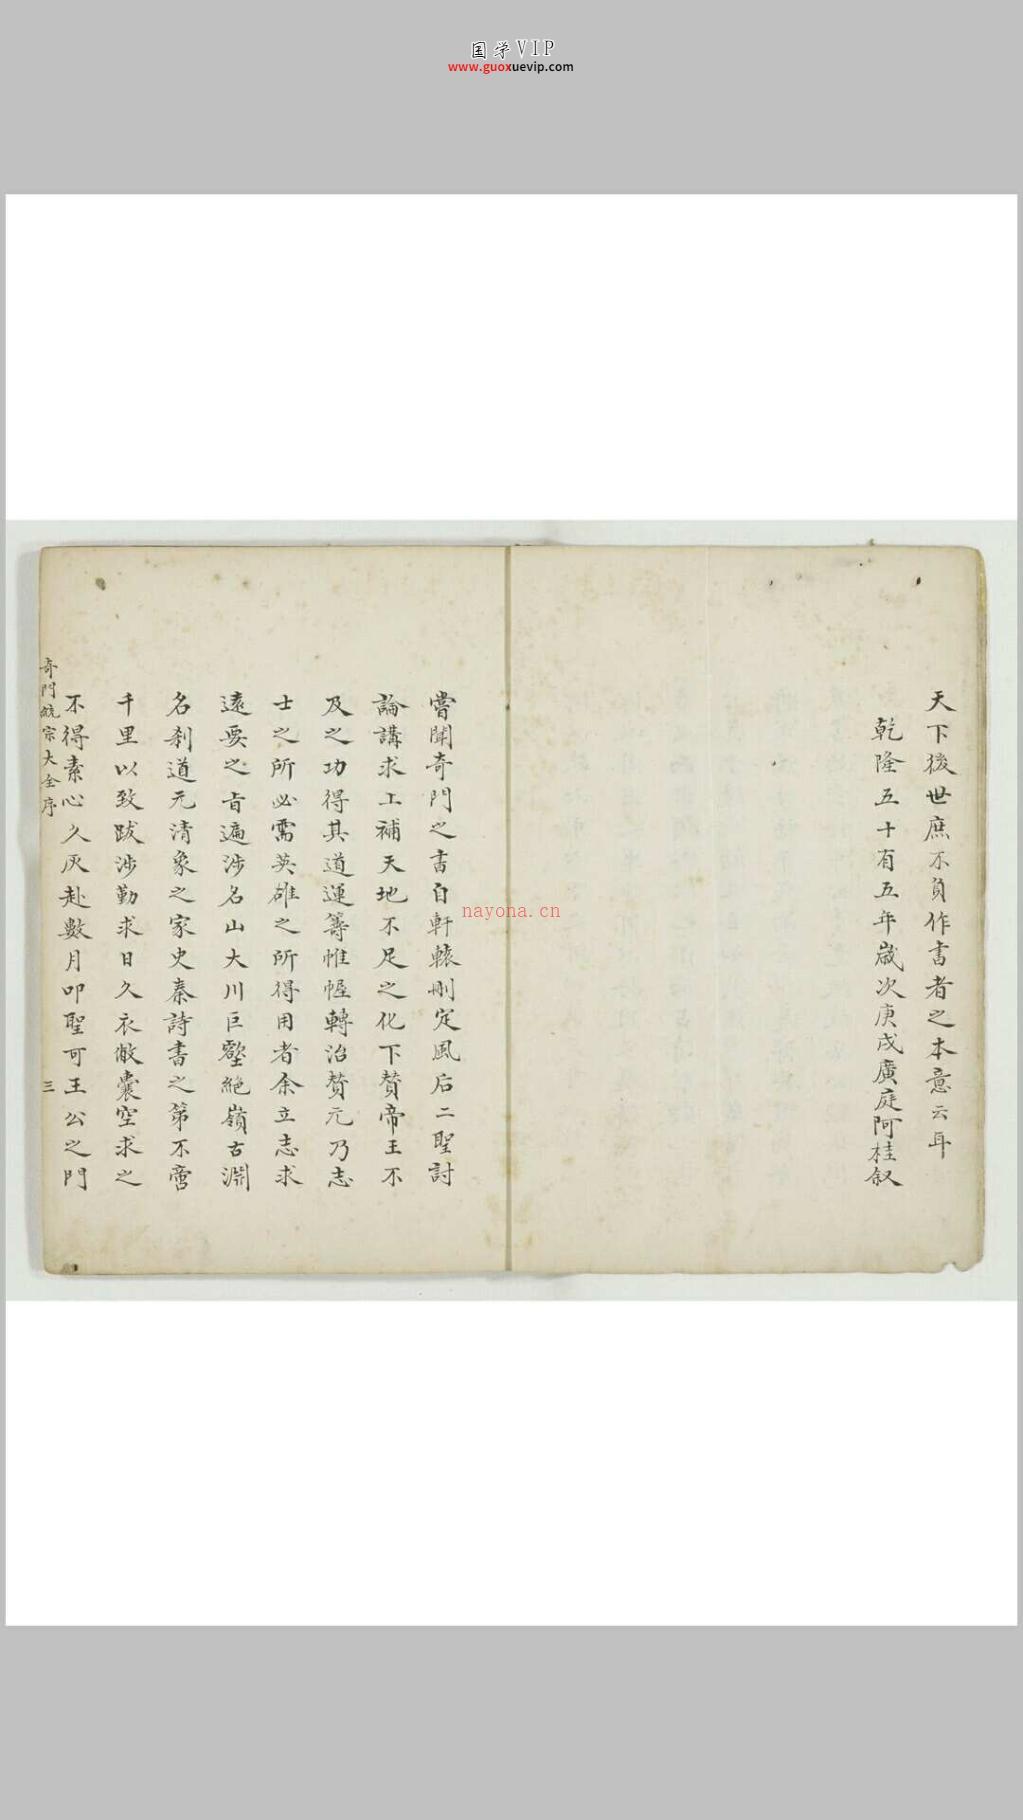 国学VIP
www.guoxuevip.com
天下後世庶不負作書者之本意云耳
乾隆五十有五年歲次庚戌廣庭阿桂叙
嘗聞奇門之書自軒轅刪定風后二聖討
論講求上補天地不足之化下贊帝王不
及之功得其道運籌帷幄轉治贊元乃志
士之所必需英雄之所得用者余立志求
遠要之旨遍涉名山大川巨壑絕嶺古淵
名刹道元清象之家史秦詩書之第不啻
千里以致跋涉勤求日久衣敝囊空求之
不得素心久灰赴數月叩聖可王公之門
奇門統宗大全序
三
nayona.cn